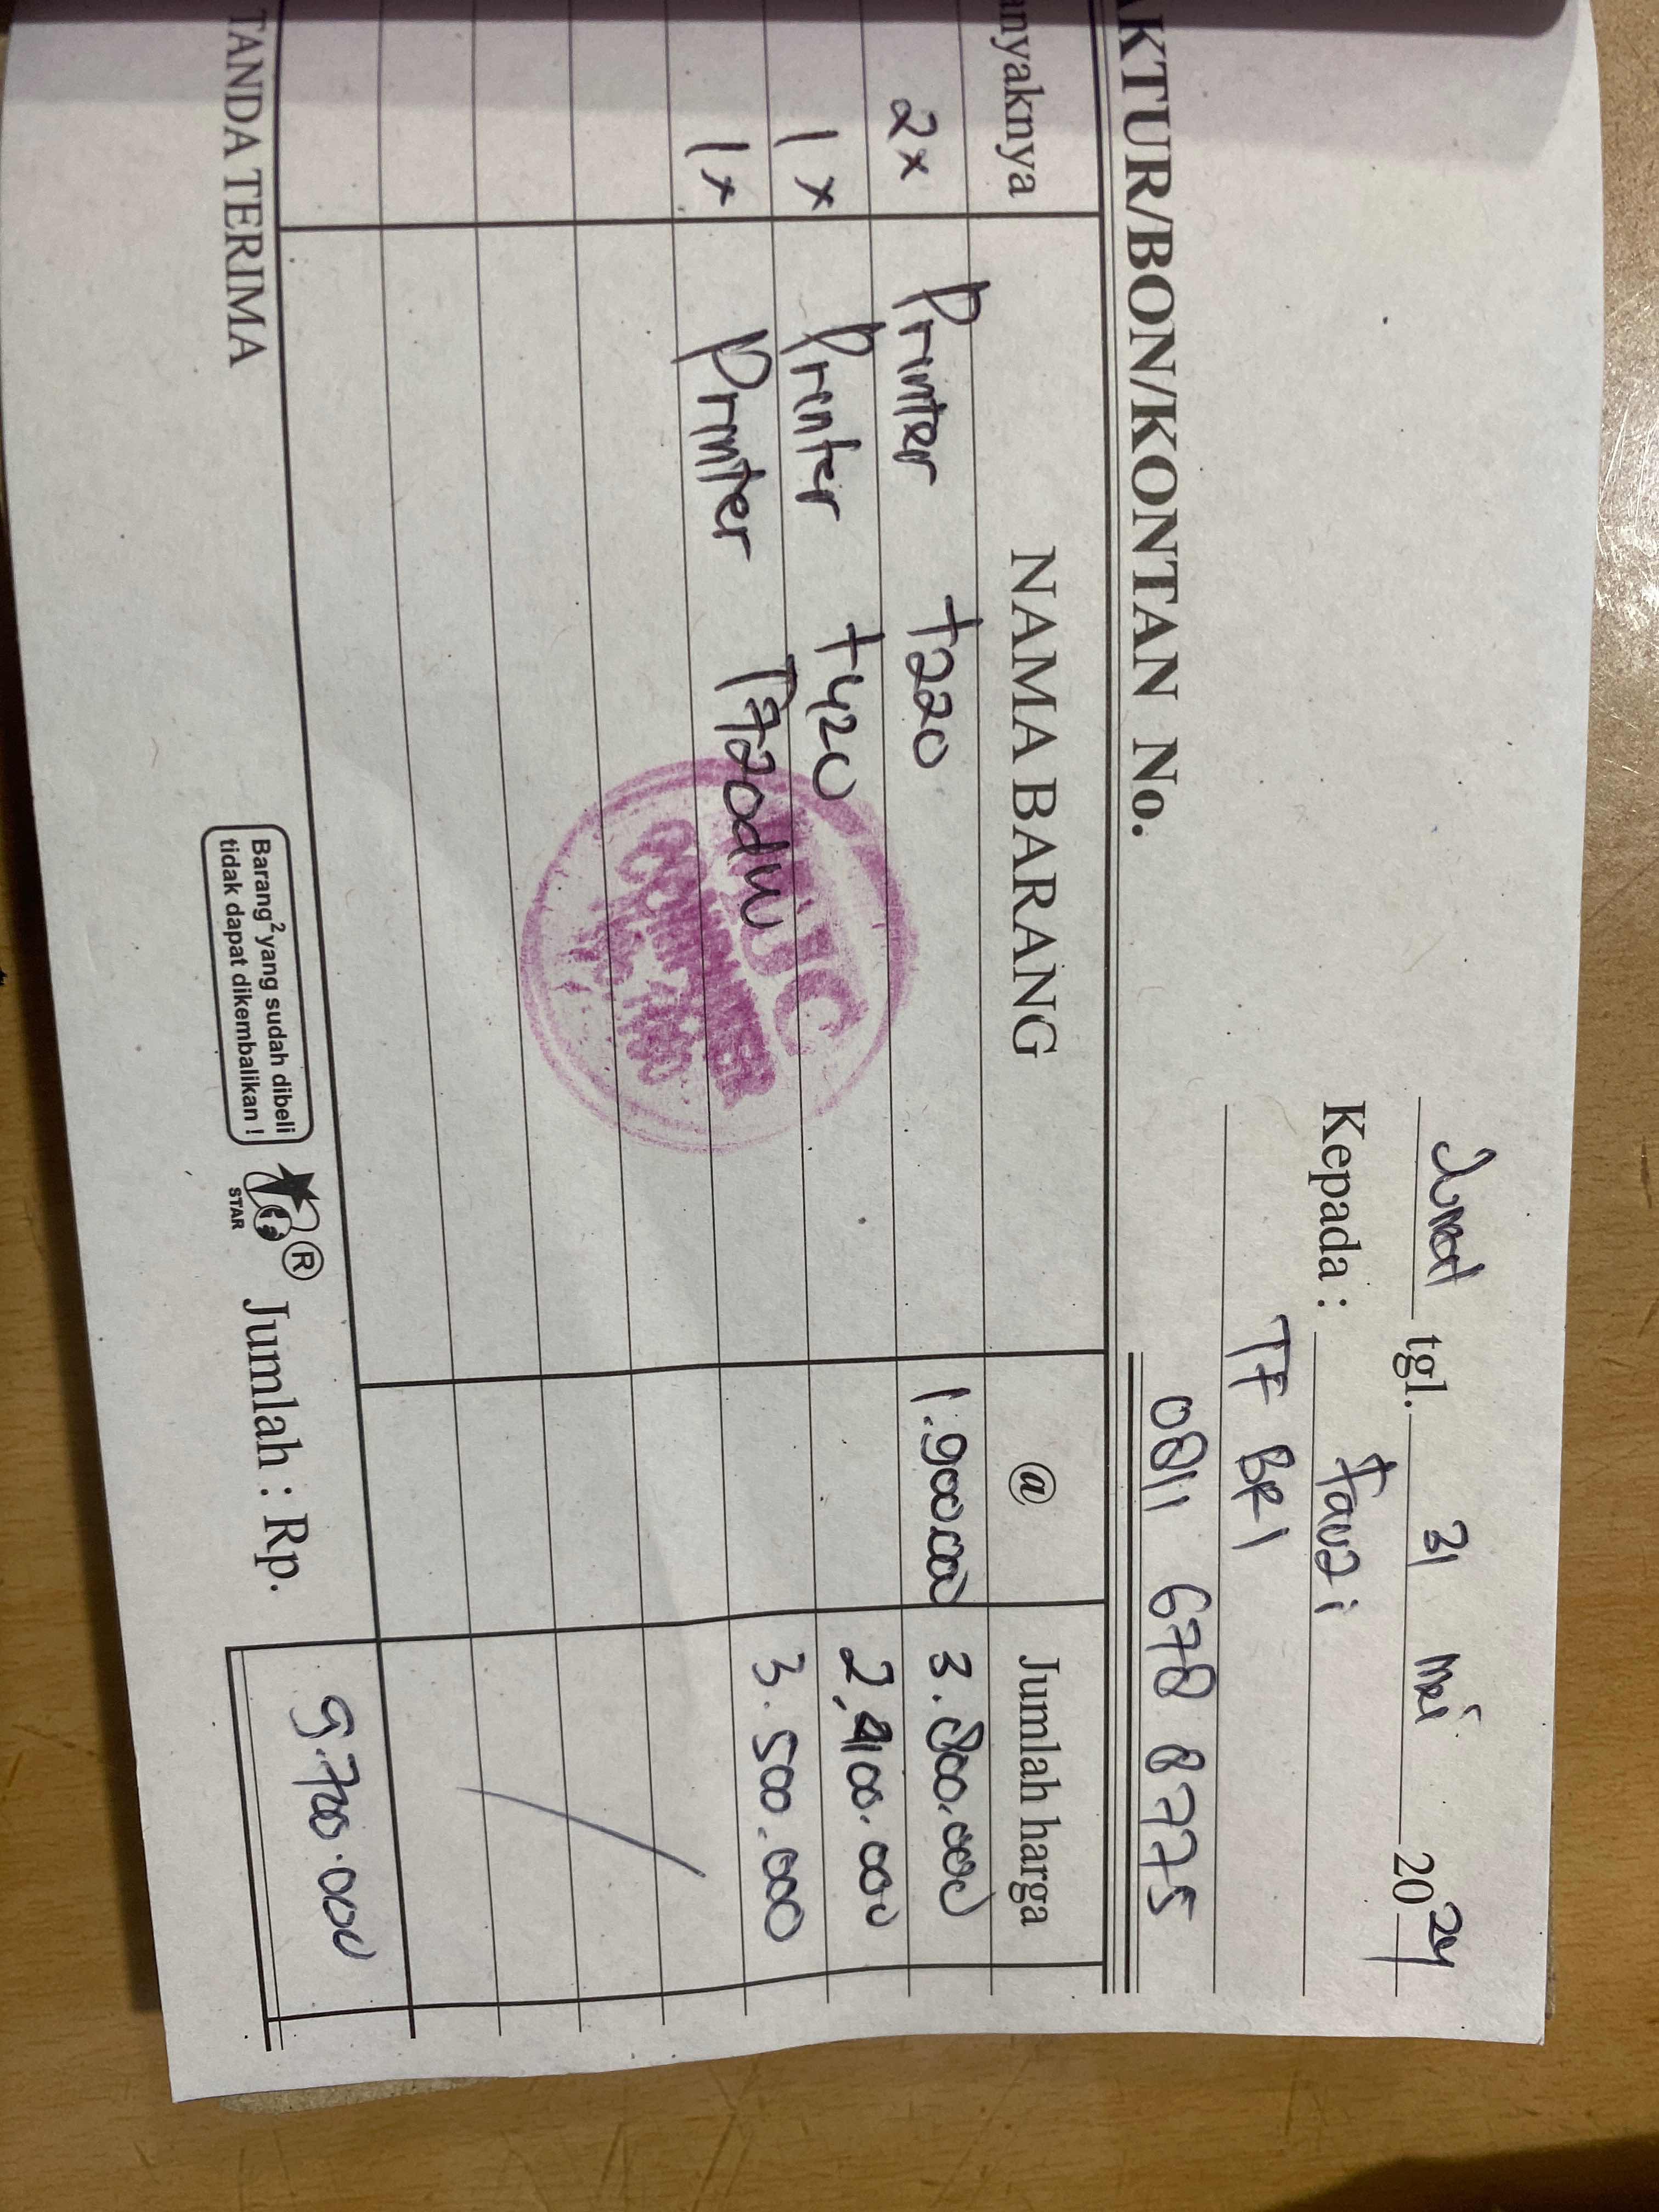 Jumat tgl. 31 mei 2024
Kepada : Fauzi
TF BRI
0811 678 8775
AKTUR/BON/KONTAN No.
anyaknya NAMA BARANG @ Jumlah harga
2x Printer T220 1.900.000 3.800.000
1x Printer T420 2,400.000
1x Printer T720dw 3.500.000
UJC
TANDA TERIMA
Barang² yang sudah dibeli
tidak dapat dikembalikan !
STAR ®
Jumlah : Rp. 9.700.000